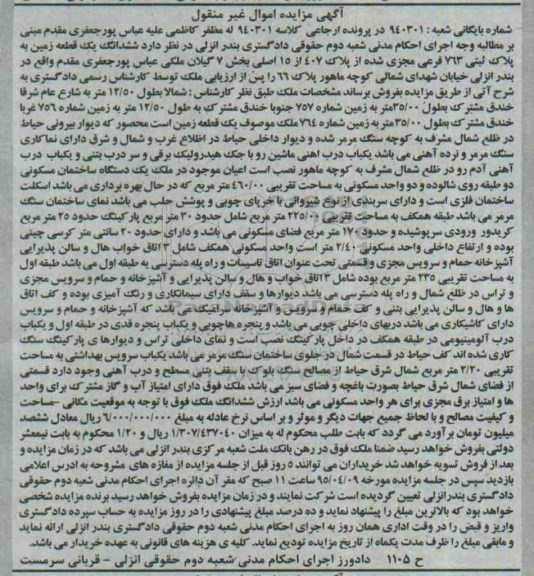 آگهی مزایده اموال غیر منقول
شماره بایگانی شعبه : ۹۴۰۳۰۱ در پرونده ارجاعی کلاسه ۹۴۰۳۰۱ له مظفر کاظمی علیه عباس پورجعفری مقدم مبنی
بر مطالبه وجه اجرای احکام مدنی شعبه دوم حقوقی دادگستری بندر انزلی در نظر دارد ششدانگ یک قطعه زمین به
پلاک ثبتی ۷۶۳ فرعی مجزی شده از پلاک ۴۰۷ از ۱۵ اصلی بخش ۷ گیلان ملکی عباس پورجعفری مقدم واقع در
بندر انزلی خیابان شهدای شمالی کوچه ماهور پلاک ۶۶ را پس از ارزیابی ملک توسط کارشناس رسمی دادگستری به
شرح آتی از طریق مزایده بفروش برساند مشخصات ملک طبق نظر کارشناس : شمالا بطول ۱۲/۵۰ متر به شارع عام شرقا
خندق مشترک بطول ۳۵/۰۰متر به زمین شماره ۷۵۷ جنوبا خندق مشترک به طول ۱۲/۵۰ متر به زمین شماره ۷۵۶ غربا
خندق مشترک بطول ۳۵/۰۰متر به زمین شماره ۷۶۴ ملک موصوف یک قطعه زمین است محصور که دیوار بیرونی حیاط
در ظلع شمال مشرف به کوچه سنگ مرمر شده و دیوار داخلی حیاط در اظلاع غرب و شمال و شرق دارای نماکاری
سنگ مرمر و نرده آهنی می باشد یکباب درب اهنی ماشین رو با جک هیدرولیک برقی و سر درب بتنی و یکباب درب
آهنی آدم رو در ظلع شمال مشرف به کوچه ماهور نصب است اعیان موجود در ملک یک دستگاه ساختمان مسکونی
دو طبقه روی شالوده و دو واحد مسکونی به مساحت تقریبی ۴۶۰/۰۰ متر مربع که در حال بهره برداری می باشد اسکلت
ساختمان فلزی است و دارای سربندی از نوع شیروانی با خرپای چوبی و پوشش حلب می باشد نمای ساختمان سنگ
مرمر می باشد طبقه همکف به مساحت تقریبی ۲۲۵/۰۰ متر مربع شامل حدود ۳۰ متر مربع پارکینگ حدود ۲۵ متر مربع
کریدور ورودی سرپوشیده و حدود ۱۷۰ متر مربع فضای مسکونی می باشد و دارای حدود ۲۰ سانتی متر کرسی چینی
بوده و ارتفاع داخلی واحد مسکونی ۲/۴۰ متر است واحد مسکونی همکف شامل ۳اتاق خواب هال و سالن پذیرایی
آشپزخانه حمام و سرویس مجزی و قسمتی تحت عنوان اتاق تاسیسات و راه پله دسترسی به طبقه اول می باشد طبقه اول
به مساحت تقریبی ۲۳۵ متر مربع بوده شامل ۳اتاق خواب و هال و سالن پذیرایی و آشپزخانه و حمام و سرویس مجزی
و تراس در ظلع شمال و راه پله دسترسی می باشد دیوارها و سقف دارای سیمانکاری و رنگ آمیزی بوده و کف اتاق
ها و هال و سالن پذیرایی بتنی و کف حمام و سرویس و آشپزخانه سرامیک می باشد که آشپزخانه و حمام و سرویس
دارای کاشیکاری می باشد دربهای داخلی چوبی می باشد و پنجره هاچوبی و یکباب پنجره قدی در طبقه اول و یکباب
درب آلومینیومی در طبقه همکف در داخل پارکینگ نصب است و نمای داخلی تراس و دیوارها ی پارکینگ سنگ
کاری شده اند کف حیاط در قسمت شمال در جلوی ساختمان سنگ مرمر می باشد یکباب سرویس بهداشتی به مساحت
تقریبی ۲/۲۰ متر مربع شمال شرق حیاط از مصالح سنگ بلوک با سقف بتنی مسطح و درب آهنی وجود دارد قسمتی
از فضای شمال شرق حیاط بصورت باغچه و فضای سبز می باشد ملک فوق دارای امتیاز آب و گاز مشترک برای واحد
ها و امتیاز برق مجزی برای هر واحد مسکونی می باشد ارزش ششدانگ ملک فوق با توجه به موقعیت مکانی –مساحت
و کیفیت مصالح و با لحاظ جمیع جهات دیگر و موثر و بر اساس نرخ عادله به مبلغ ۶/۰۰۰/۰۰۰/۰۰۰ ریال معادل ششصد
میلیون تومان برآورد می گردد که بابت طلب محکوم له به میزان ۱/۳۰۷/۴۳۷۰۴۰ ریال و ۱/۲۰ محکوم به بابت نیمعشر
دولتی بفروش خواهد رسید ضمنا ملک فوق در رهن بانک ملت شعبه مرکزی بندر انزلی می باشد که در زمان مزایده و
بعد از فروش تسویه خواهد شد خریداران می توانند ۵ روز قبل از جلسه مزایده از مغازه های مشروحه به ادرس اعلامی
بازدید سپس در جلسه مزایده مورخه ۹۵/۰۴/۰۹ ساعت ۱۱ صبح که مقر آن دائره اجرای احکام مدنی شعبه دوم حقوقی
دادگستری بندرانزلی تعیین گردیده است شرکت نمایند و در زمان مزایده بفروش خواهد رسید برنده مزایده شخصی
خواهد بود که بالاترین مبلغ را پیشنهاد نماید و ده درصد مبلغ پیشنهادی را در روز مزایده به حساب سپرده دادگستری
واریز و قبض را در وقت اداری همان روز به اجرای احکام مدنی شعبه دوم حقوقی دادگستری بندر انزلی ارائه نماید
و مابقی مبلغ را ظرف مدت یکماه از تاریخ مزایده تودیع نماید. کلیه ی هزینه های قانونی به عهده خریدار می باشد.
ح ۱۱۰۵ دادورز اجرای احکام مدنی شعبه دوم حقوقی انزلی – قربانی سرمست